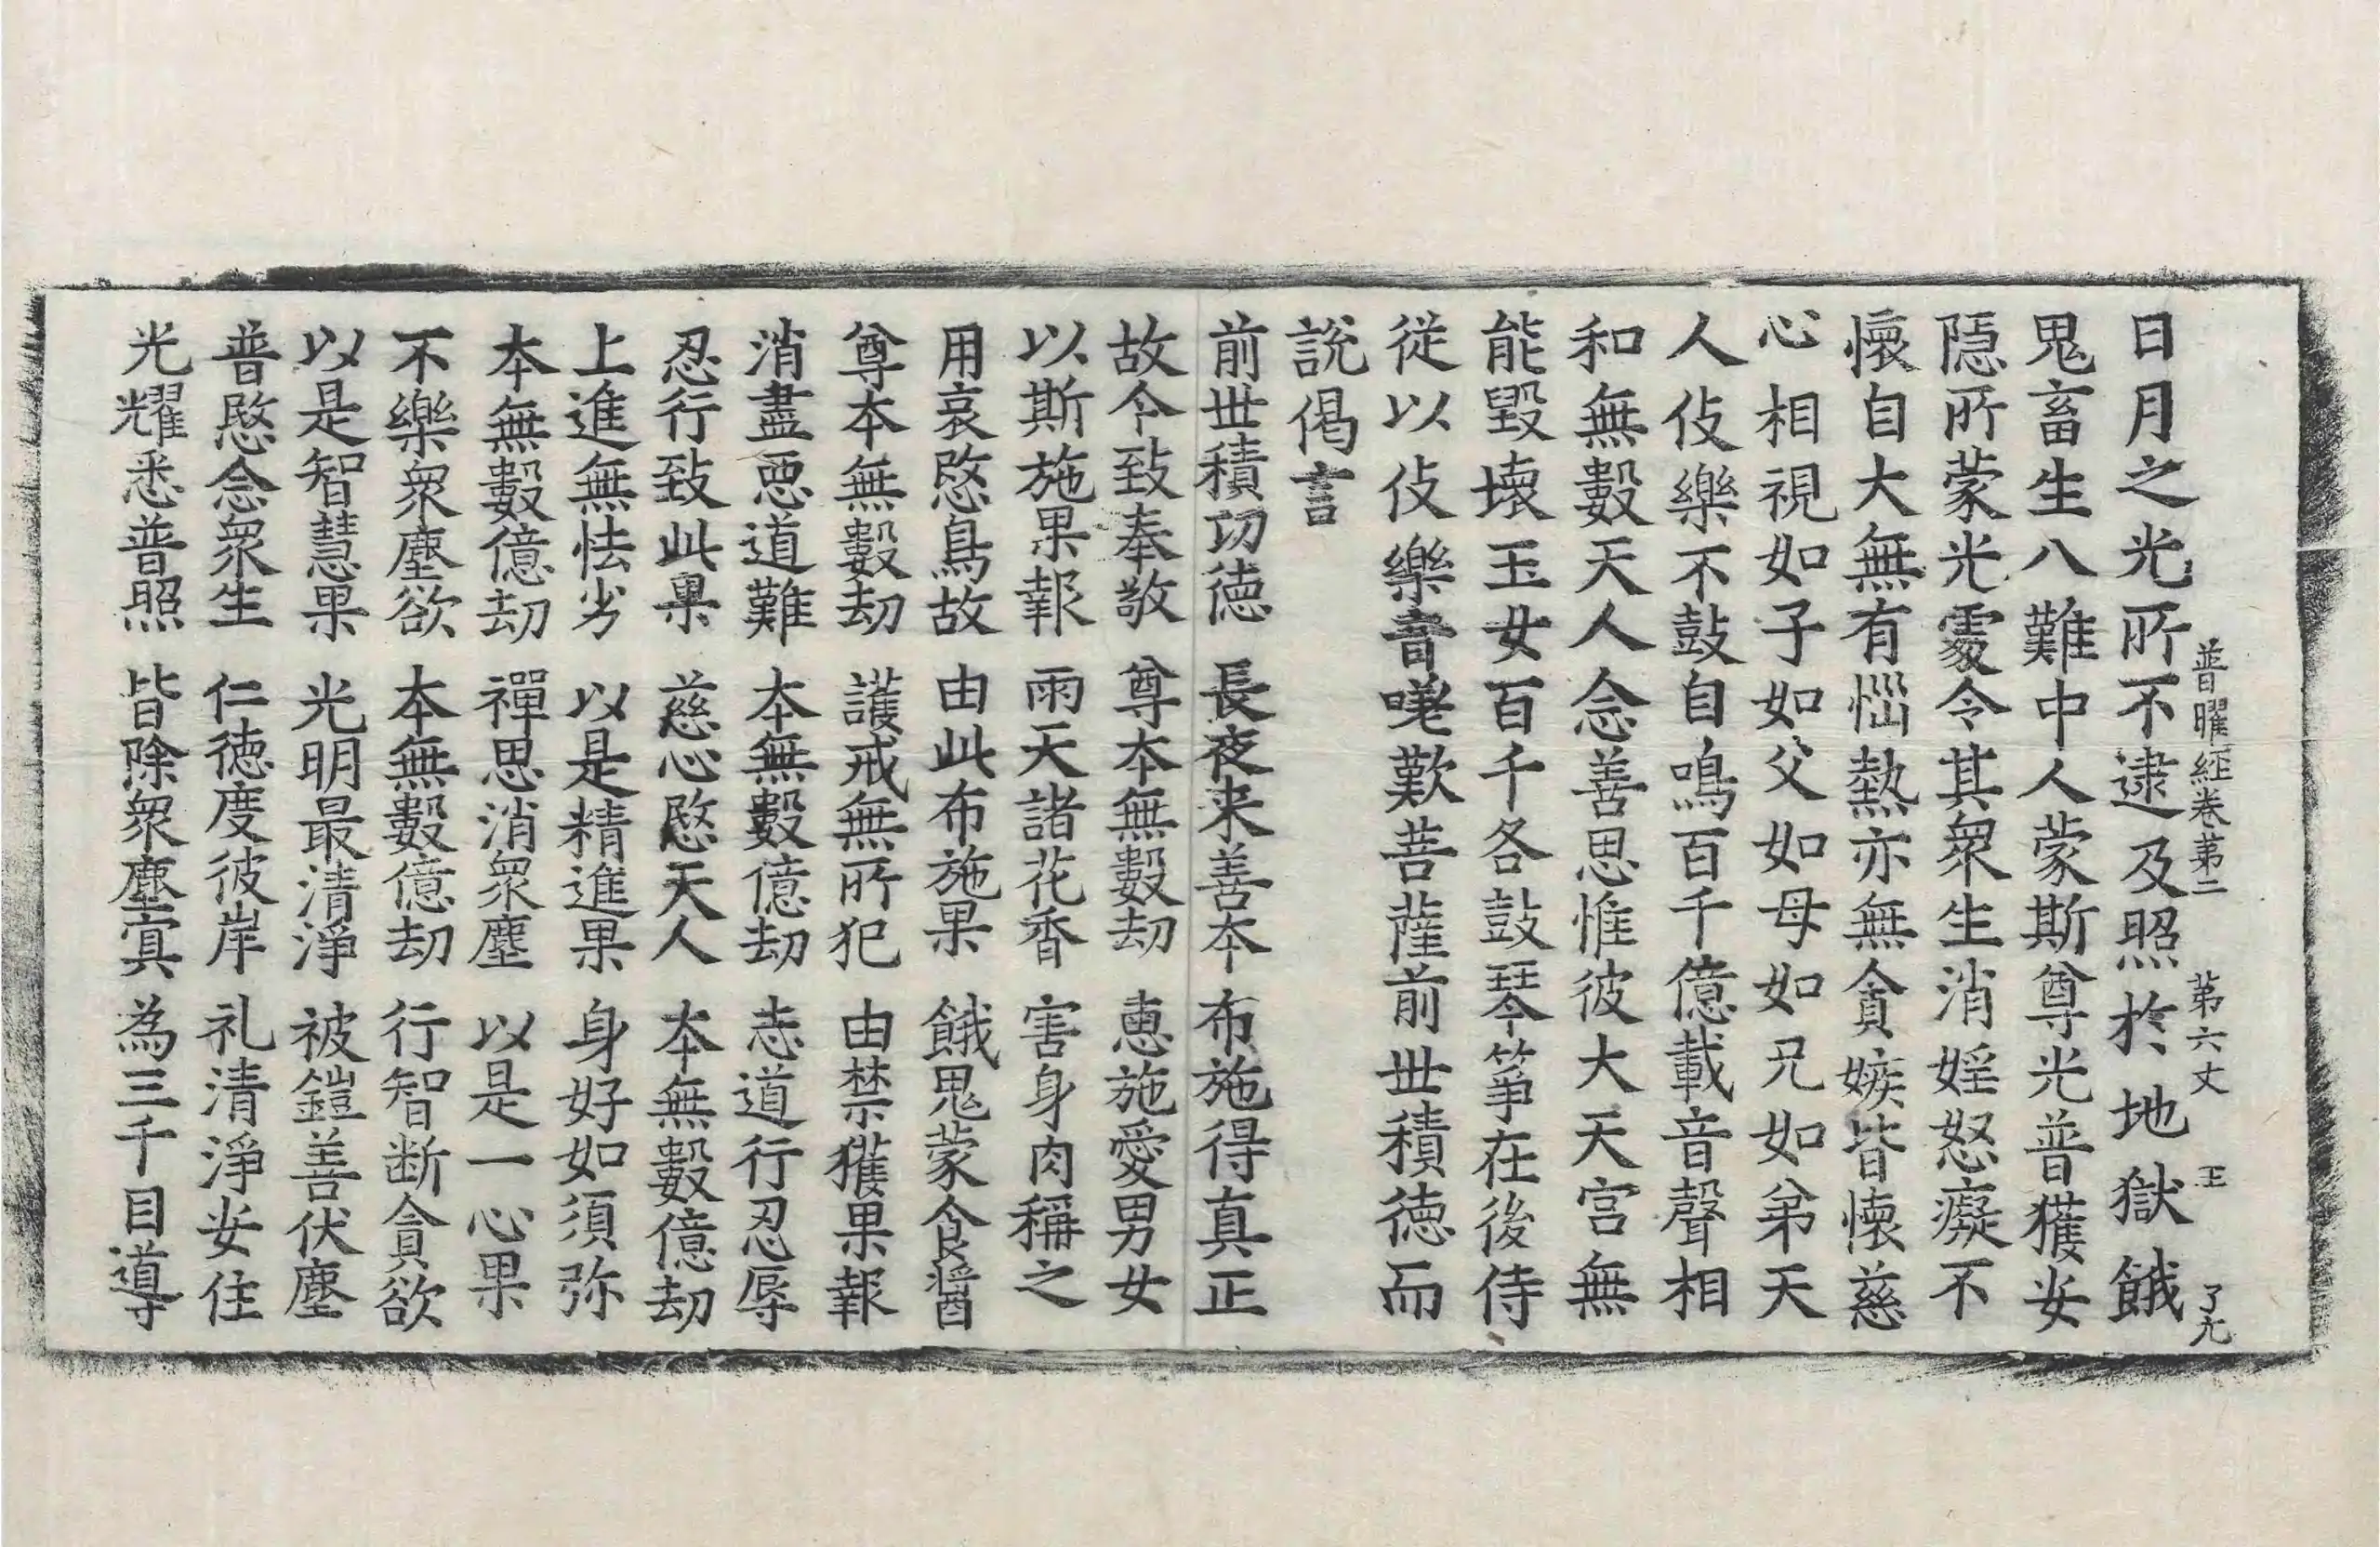 普曜經卷第二　第六丈　王　了九
日月之光所不逮及照於地獄餓
鬼畜生八難中人蒙斯尊光普獲安
隱所蒙光處令其衆生消婬怒癡不
懷自大無有惱熱亦無貪嫉皆懷慈
心相視如子如父如母如兄如弟天
人伎樂不鼓自鳴百千億載音聲相
和無數天人念善思惟彼大天宮無
能毀壞玉女百千各鼓琴箏在後侍
從以伎樂音嗟歎菩薩前世積德而
說偈言
前世積功德　長夜来善本　布施得真正
故今致奉敬　尊本無數劫　惠施愛男女
以斯施果報　雨天諸花香　害身肉稱之
用哀愍鳥故　由此布施果　餓鬼蒙食醬
尊本無數劫　護戒無所犯　由禁獲果報
消盡惡道難　本無數億劫　志道行忍辱
忍行致此果　慈心愍天人　本無數億劫
上進無怯劣　以是精進果　身好如須弥
本無數億劫　禪思消衆塵　以是一心果
不樂衆塵欲　本無數億劫　行智断貪欲
以是智慧果　光明最清淨　被鎧善伏塵
普愍念衆生　仁德度彼岸　礼清淨安住
光耀悉普照　皆除衆塵寘　為三千目導